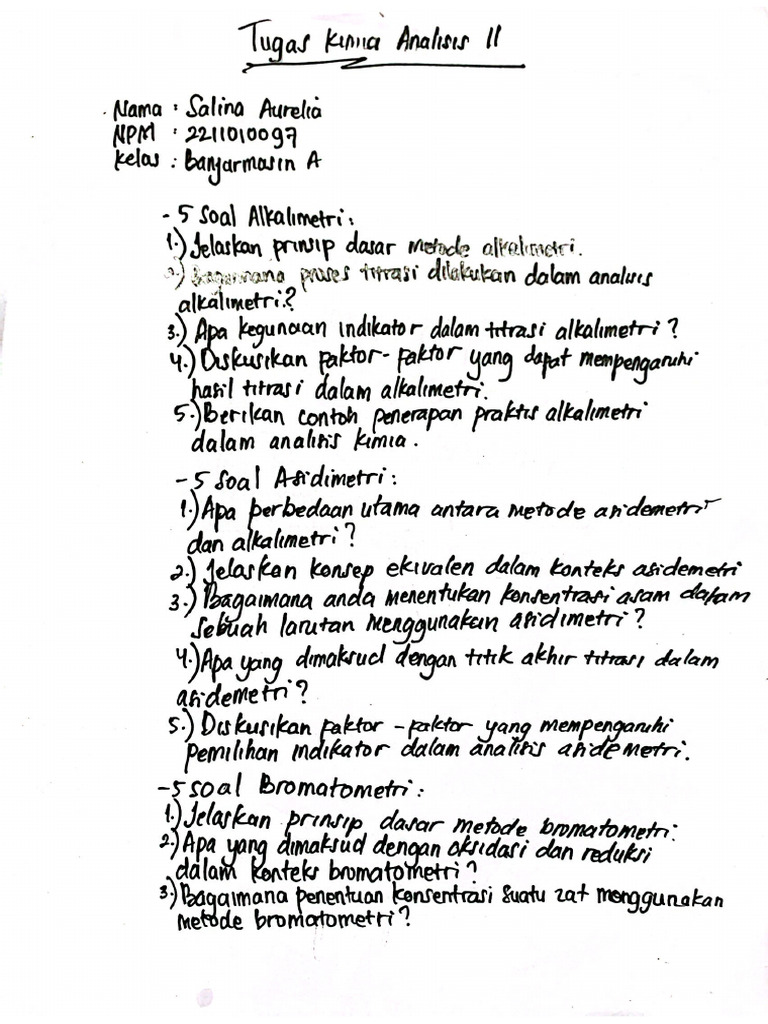 Tugas Kimia Analisis II
Nama : Salina Aurelia
NPM : 2211010097
Kelas : Banjarmasin A
- 5 Soal Alkalimetri :
1.) Jelaskan prinsip dasar metode alkalimetri.
2.) Bagaimana proses titrasi dilakukan dalam analisis
alkalimetri?
3.) Apa kegunaan indikator dalam titrasi alkalimetri?
4.) Diskusikan faktor-faktor yang dapat mempengaruhi
hasil titrasi dalam alkalimetri.
5.) Berikan contoh penerapan praktis alkalimetri
dalam analisis kimia.
- 5 Soal Asidimetri :
1.) Apa perbedaan utama antara metode asidemetri
dan alkalimetri?
2.) Jelaskan konsep ekivalen dalam konteks asidemetri
3.) Bagaimana anda menentukan konsentrasi asam dalam
sebuah larutan menggunakan asidimetri?
4.) Apa yang dimaksud dengan titik akhir titrasi dalam
asidemetri?
5.) Diskusikan faktor-faktor yang mempengaruhi
pemilihan indikator dalam analisis asidemetri.
- 5 soal Bromatometri :
1.) Jelaskan prinsip dasar metode bromatometri.
2.) Apa yang dimaksud dengan oksidasi dan reduksi
dalam konteks bromatometri?
3.) Bagaimana penentuan konsentrasi suatu zat menggunakan
metode bromatometri?